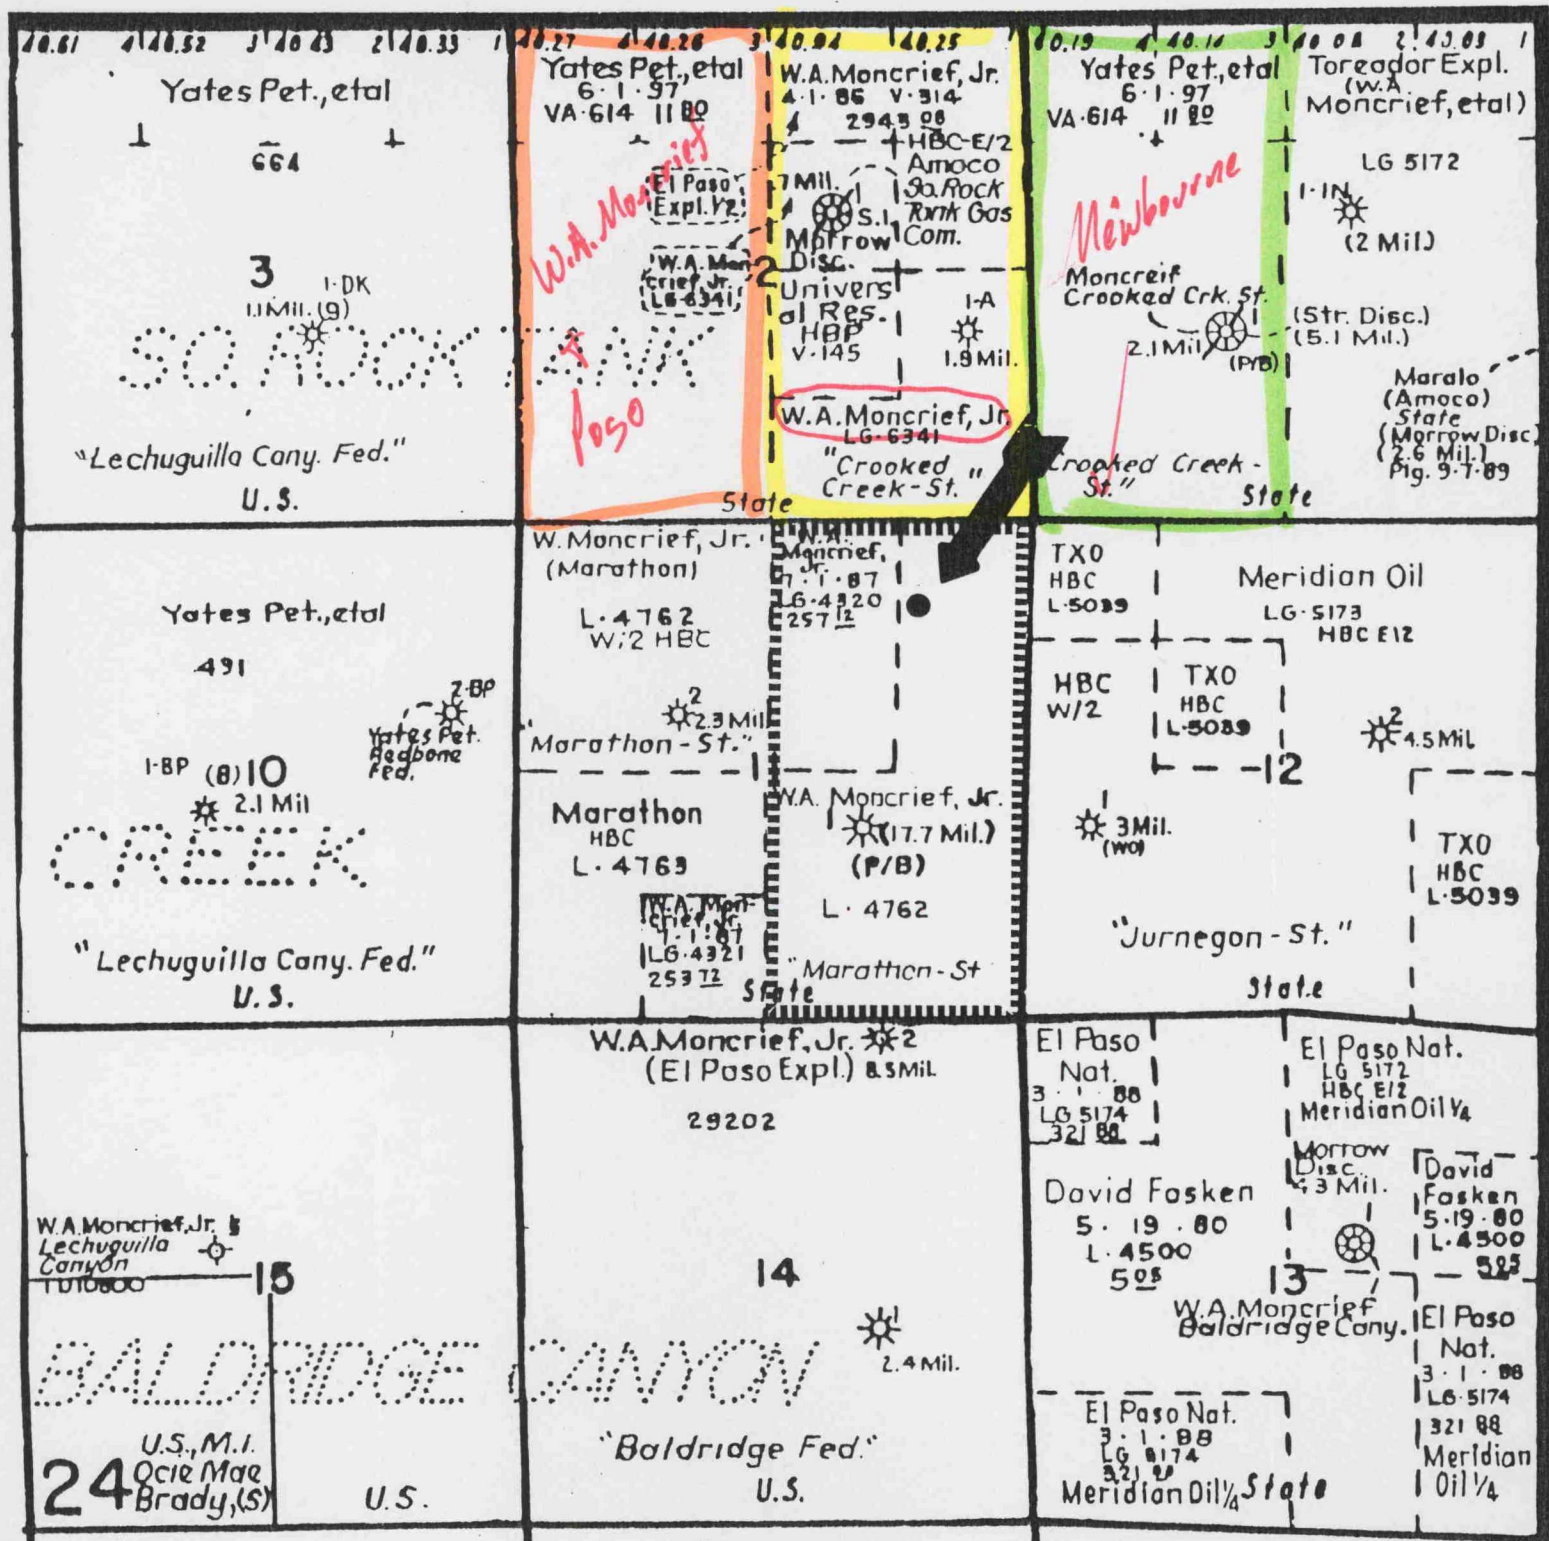 40.61 4 40.52 3 40.43 2 40.33 1
40.27 4 40.26 3 40.25
40.19 4 40.14 3 2 1
Yates Pet., etal
664
3
1-DK
1.1 Mil. (9)
SO. ROCK TANK
"Lechuguilla Cany. Fed."
U.S.
Yates Pet., etal
6·1·97
VA·614 11 80
W.A. Moncrief
El Paso
Expl. 1/2
W.A. Mon-
crief, Jr.
LG-6341
2
Paso
State
W.A. Moncrief, Jr.
4·1·86 V·314
2943 08
HBC-E/2
Amoco
So. Rock
Tank Gas
Com.
7 Mil.
1
S.I.
Morrow
Disc.
Univers
al Res.
HBP
V·145
1-A
1.9 Mil.
W.A. Moncrief, Jr.
LG-6341
"Crooked
Creek-St."
Yates Pet., etal
6·1·97
VA·614 11 80
Mewbourne
Moncreif
Crooked Crk. St.
1
2.1 Mil
(P/B)
Crooked Creek-
St."
State
Toreador Expl.
(W.A
Moncrief, etal)
LG 5172
1-1N
(2 Mil)
(Str. Disc.)
(5.1 Mil.)
Maralo
(Amoco)
State
(Morrow Disc)
(2.6 Mil.)
Plg. 9-7-89
Yates Pet., etal
491
2-BP
Yates Pet.
Redbone
Fed.
1-BP (8) 10
2.1 Mil
CREEK
"Lechuguilla Cany. Fed."
U.S.
W. Moncrief, Jr.
(Marathon)
L·4762
W/2 HBC
2
2.3 Mil
"Marathon-St."
Marathon
HBC
L·4763
W.A. Mon-
crief, Jr.
7·1·87
LG-4321
253 72
State
W.A.
Moncrief,
Jr.
7·1·87
LG-4320
257 12
W.A. Moncrief, Jr.
1
(17.7 Mil.)
(P/B)
L·4762
"Marathon-St
TXO
HBC
L-5039
Meridian Oil
LG-5173
HBC E/2
HBC
W/2
TXO
HBC
L-5039
2
4.5 Mil
12
1
3 Mil.
(WO)
TXO
HBC
L-5039
"Jurnegon-St."
State
W.A. Moncrief, Jr.
Lechuguilla
Canyon
15
BALDRIDGE CANYON
U.S., M.I.
Ocie Mae
Brady, (S)
24
U.S.
W.A. Moncrief, Jr. 2
(El Paso Expl.) 8.5 Mil.
29202
14
1
2.4 Mil.
"Baldridge Fed."
U.S.
El Paso
Nat.
3·1·88
LG 5174
321 88
David Fasken
5·19·80
L·4500
5 05
13
El Paso Nat.
LG 5172
HBC E/2
Meridian Oil 1/4
Morrow
Disc.
4.3 Mil.
David
Fasken
5·19·80
L·4500
5 05
W.A. Moncrief
Baldridge Cany.
El Paso
Nat.
3·1·88
LG-5174
321 88
Meridian
Oil 1/4
El Paso Nat.
3·1·88
LG 5174
321 88
Meridian Oil 1/4
State